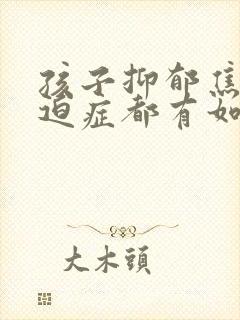 孩子抑郁焦
迫症都有如
大木頭